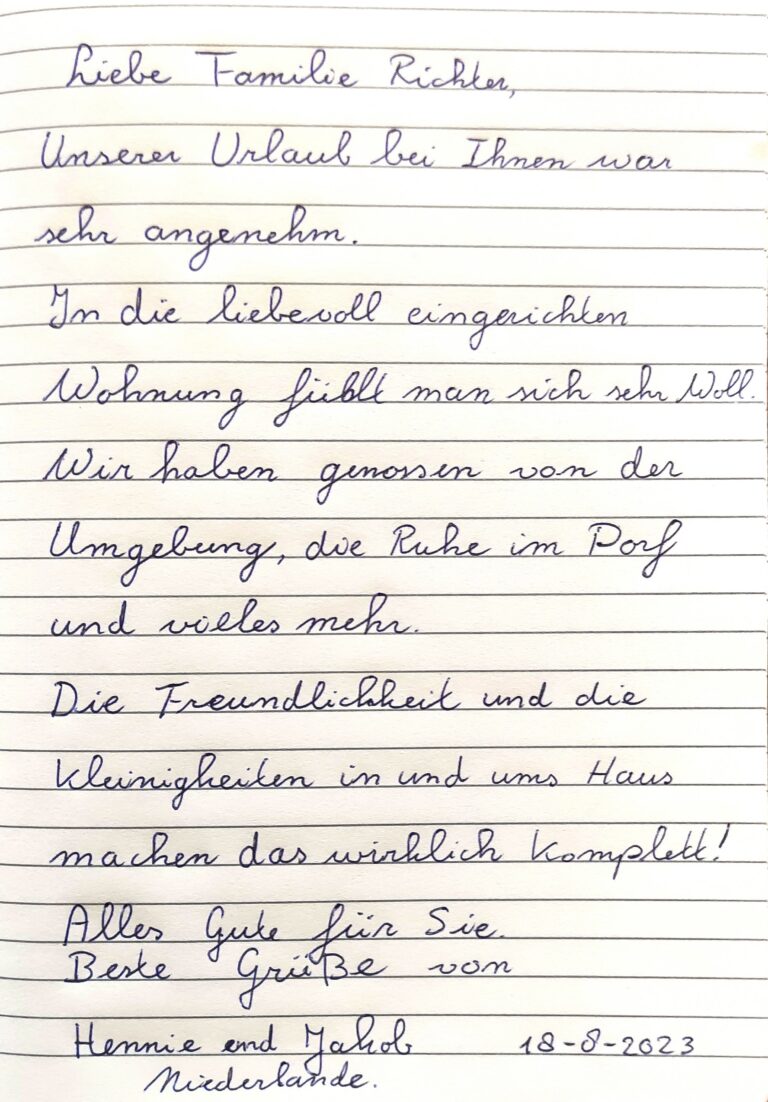 Liebe Familie Richter,
Unserer Urlaub bei Ihnen war
sehr angenehm.
In die liebevoll eingerichten
Wohnung fühlt man sich sehr Woll.
Wir haben genossen von der
Umgebung, die Ruhe im Dorf
und vielles mehr.
Die Freundlichkeit und die
kleinigheiten in und ums Haus
machen das wirklich komplett!
Alles Gute für Sie.
Beste Grüße von
Hennie end Jakob 18-8-2023
Niederlande.